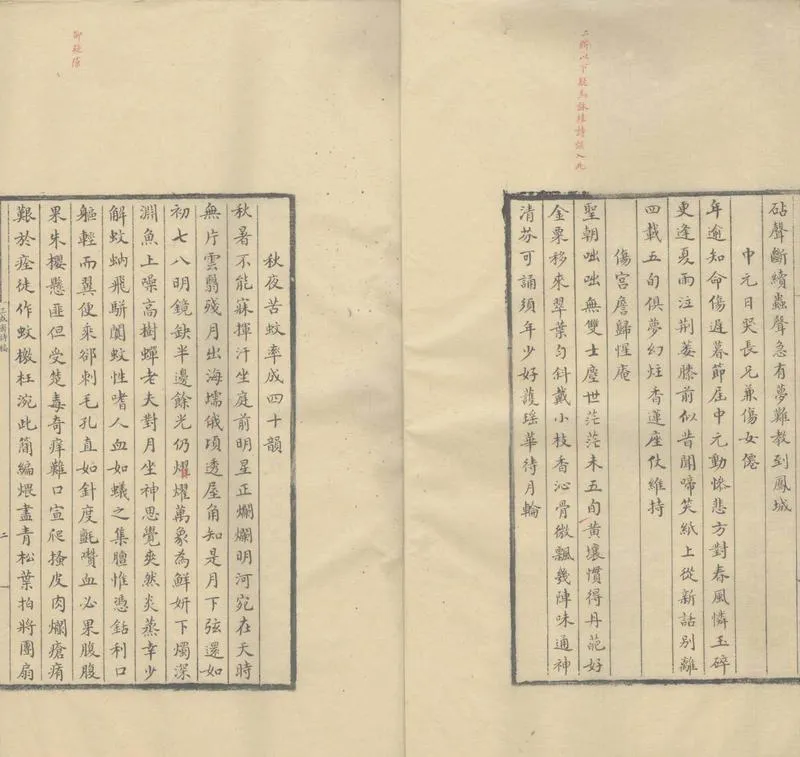 二頁以下疑為詠梅詩誤入此
砧聲斷續蟲聲急有夢難教到鳳城
中元日哭長兄兼傷女僊
年逾知命傷遲暮節屆中元動慘悲方對春風憐玉碎
更逢夏雨注荆萎膝前似昔聞啼笑紙上從新話別離
四載五旬俱夢幻炷香蓮座仗維持
傷宮詹歸惺庵
聖朝咄咄無雙士塵世茫茫未五旬黃壤慣得丹葩好
金粟移來翠葉勻斜戴小枝香沁骨微飄幾陣味通神
清芬可誦須年少好護瑶華待月輪
秋夜苦蚊率成四十韻
秋暑不能寐揮汗坐庭前明星正爛爛明河宛在天時
無片雲翳殘月出海壖俄頃透屋角知是月下弦還如
初七八明鏡缺半邊餘光仍燿燿萬象為鮮妍下燭深
淵魚上噪高樹蟬老夫對月坐神思覺爽然炎蒸幸少
解蚊蚋飛駢闐蚊性嗜人血如蟻之集膻惟憑鉆利口
軀輕而翼便來郤刺毛孔直如針度氈囋血必果腹腹
果朱櫻懸匪但受楚毒奇痒難口宣爬搔皮肉爛瘡痏
艱於痊徒作蚊檄枉涴此簡編煨盡青松葉拍將團扇
二